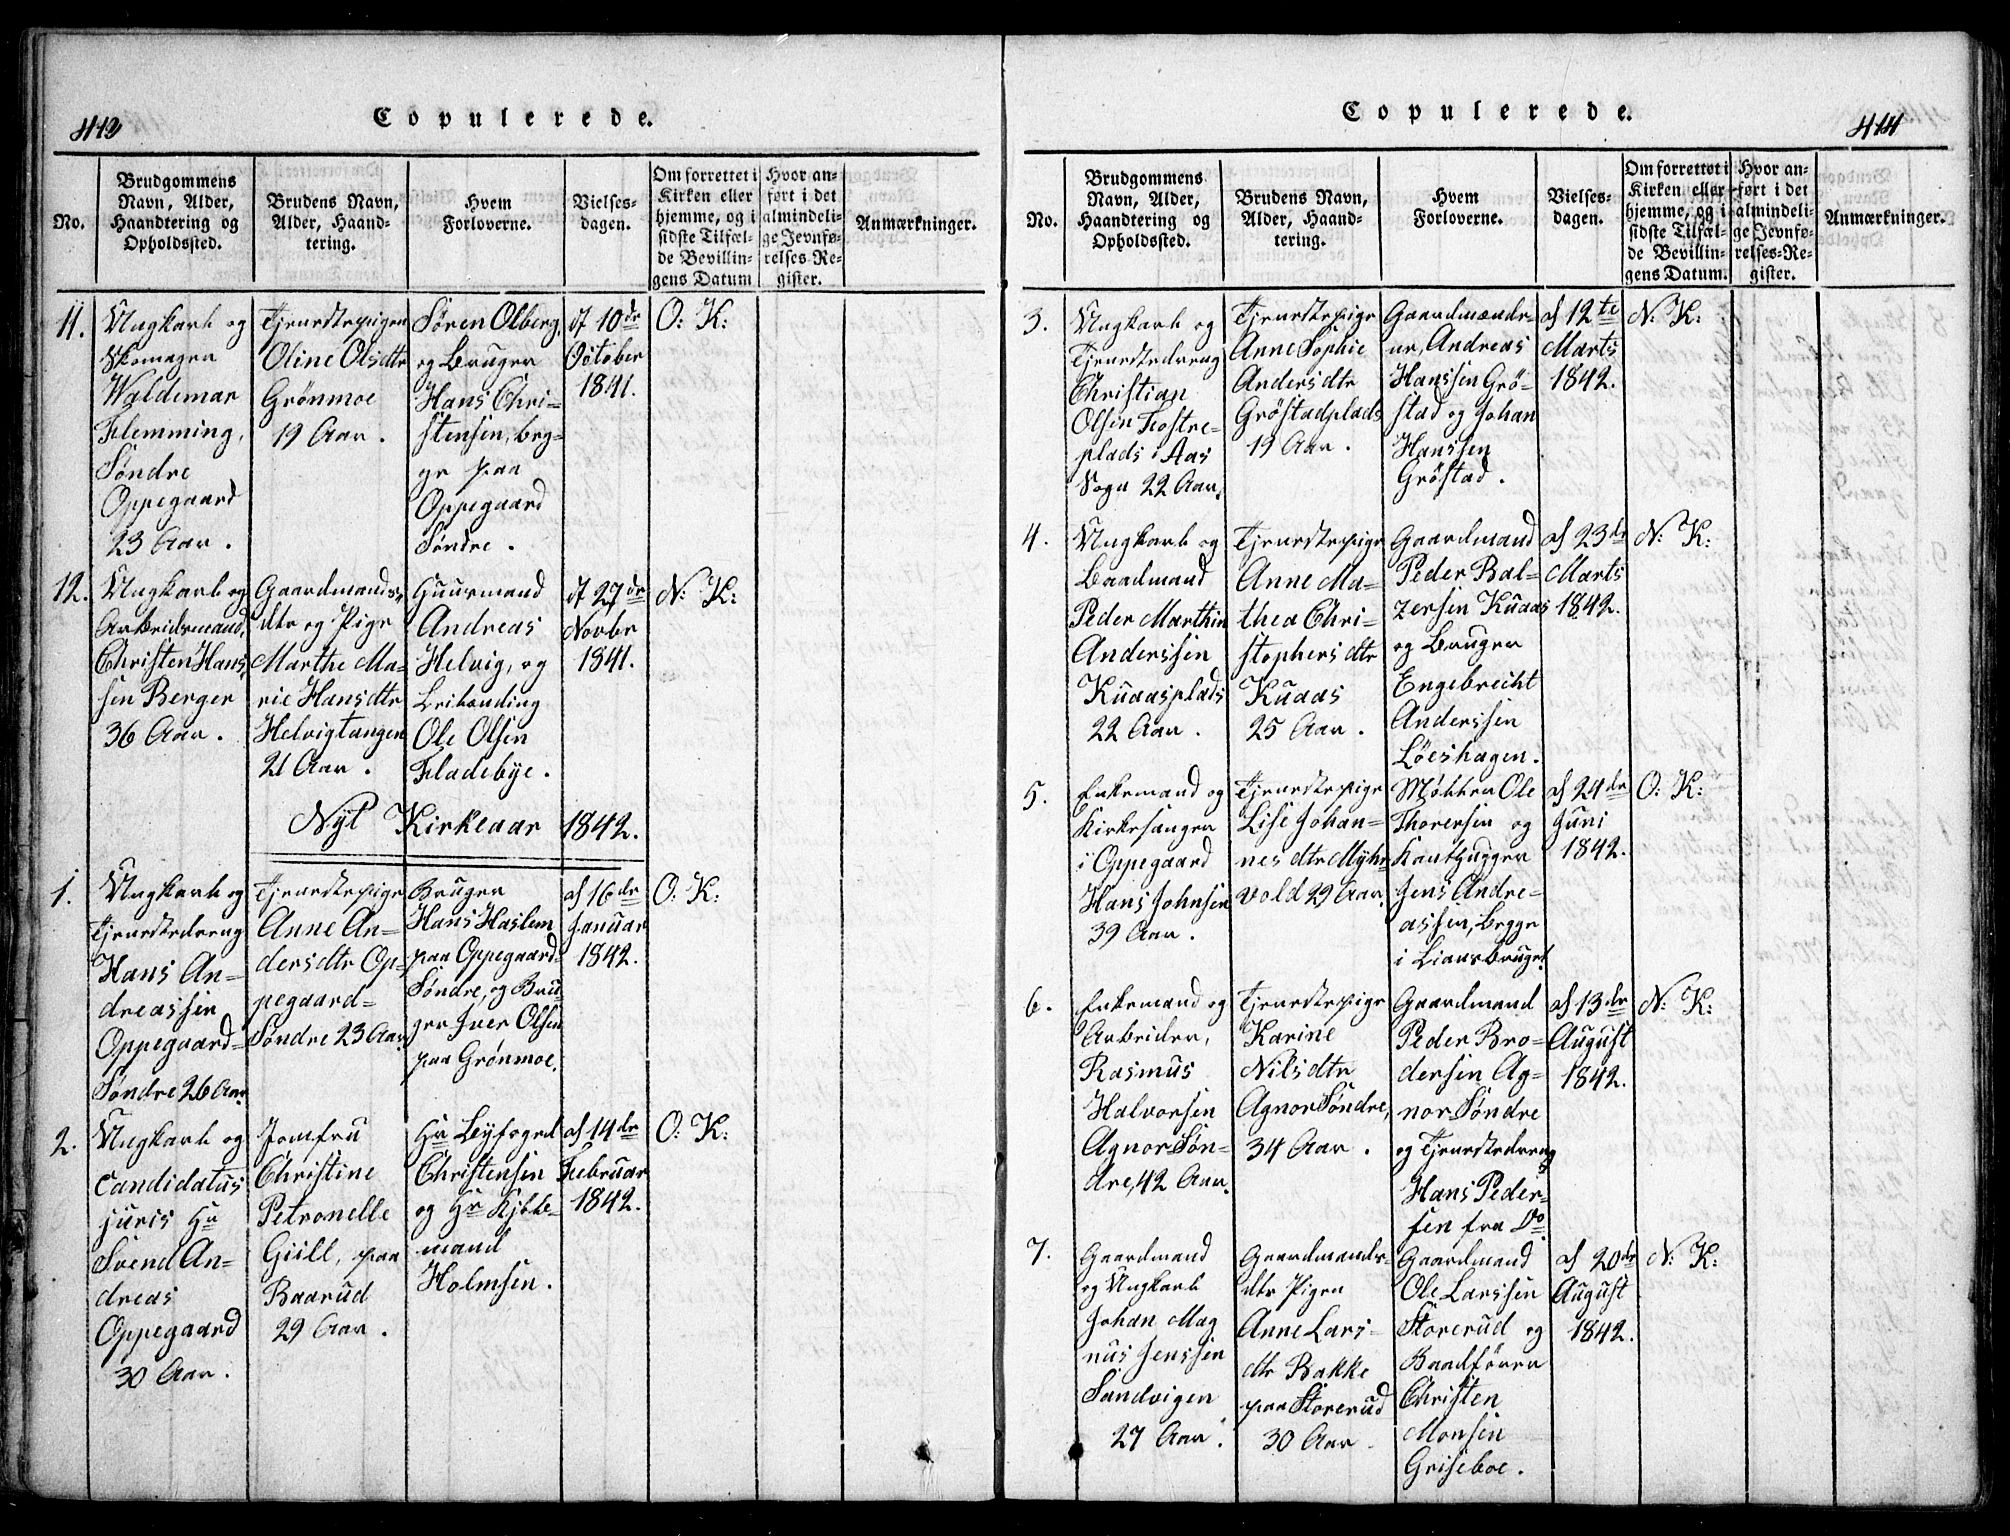 413
Copulerede.
No.
Brudgommens
Navn, Alder,
Haandtering og
Opholdssted.
Brudens Navn,
Alder, Haand-
tering.
Hvem
Forloverne.
Vielses-
dagen.
Om forrettet i
Kirken eller
hjemme, og i
sidste Tilfæl-
de Bevillin-
gens Datum
Hvor an-
ført i det
almindeli-
ge Jevnfø-
relses-Re-
gister.
Anmærkninger.
11.
Ungkarl og
Skomager
Waldemar
Flemming,
Søndre
Oppegaard
23 Aar.
Tjenestepigen
Oline Olsdtr
Grönmoe
19 Aar.
Søren Olberg
og Bruger
Hans Chri-
stensen, beg-
ge paa
Oppegaard
Søndre.
d 10de
October
1841.
O: K:
12.
Ungkarl og
Arbeidsmand,
Christen Hans-
sen Berger
36 Aar.
Gaardmands-
dtr og Pige
Marthe Ma-
rie Hansdtr
Helvigtangen
21 Aar.
Huusmand
Andreas
Helvig, og
Leilænding
Ole Olsen
Fladebye.
d 27de
Novbr
1841.
N: K:
Nyt Kirkeaar 1842.
1.
Ungkarl og
Tjenestedreng
Hans An-
dreassen
Oppegaard-
Søndre 26 Aar.
Tjenestepige
Anne An-
dersdtr Op-
pegaard-
Søndre 23 Aar.
Bruger
Hans Haslem
paa Oppegaard-
Søndre, og Bru-
ger Iver Olsen
paa Grönmoe.
d 16de
Januar
1842.
O: K:
2.
Ungkarl og
Candidatus
juris Hr
Svend An-
dreas
Oppegaard
30 Aar.
Jomfru
Christine
Petronelle
Giill, paa
Baarud
29 Aar.
Hr Byfoged
Christensen
og Hr Kjøbe-
mand
Holmsen.
d 14de
Februar
1842.
O: K:
Copulerede.
414
No.
Brudgommens
Navn, Alder,
Haandtering og
Opholdssted.
Brudens Navn,
Alder, Haand-
tering.
Hvem
Forloverne.
Vielses-
dagen.
Om forrettet i
Kirken eller
hjemme, og i
sidste Tilfæl-
de Bevillin-
gens Datum.
Hvor an-
ført i det
almindeli-
ge Jevnfø-
relses-Re-
gister.
Anmærkninger.
3.
Ungkarl og
Tjenestedreng
Christian
Olsen Fostre-
plads i Aas
Sogn 22 Aar.
Tjenestepige
Anne Sophie
Andersdtr
Gröstadplads
19 Aar.
Gaardmænde-
ne, Andreas
Hanssen Grö-
stad og Johan
Hanssen
Gröstad.
d 12te
Marts
1842.
N: K:
4.
Ungkarl og
Baadmand
Peder Marthin
Anderssen
Kuaasplads
22 Aar.
Tjenestepige
Anne Ma-
thea Chri-
stophersdtr
Kuaas
25 Aar.
Gaardmand
Peder Bal-
zersen Kuaas
og Bruger
Engebrecht
Anderssen
Löeshagen.
d 23de
Marts
1842.
N: K:
5.
Enkemand og
Kirkesanger
i Oppegaard
Hans Johnsen
39 Aar.
Tjenestepige
Lise Johan-
nesdtr Myhr
vold 29 Aar.
Møller Ole
Thoresen og
Kanthugger
Jens Andre-
assen, begge
i Liansbruget.
d 24de
Juni
1842.
O: K:
6.
Enkemand og
Arbeider,
Rasmus
Halvorsen
Agnor Søn-
dre, 42 Aar.
Tjenestepige
Karine
Nilsdtr
Agnor Søndre,
34 Aar.
Gaardmand
Peder Bro-
dersen Ag-
nor Søndre
og Tjenestedreng
Hans Peder-
sen fra Do.
d 13de
August
1842.
N: K:
7.
Gaardmand
og Ungkarl
Johan Mag
nus Jenssen
Sandvigen
27 Aar.
Gaardmands-
dtr Pigen
Anne Lars-
dtr Bakke
paa Storerud
30 Aar.
Gaardmand
Ole Larssen
Storerud og
Baadfører
Christen
Monsen
Griseboe.
d 20de
August
1842.
N: K: